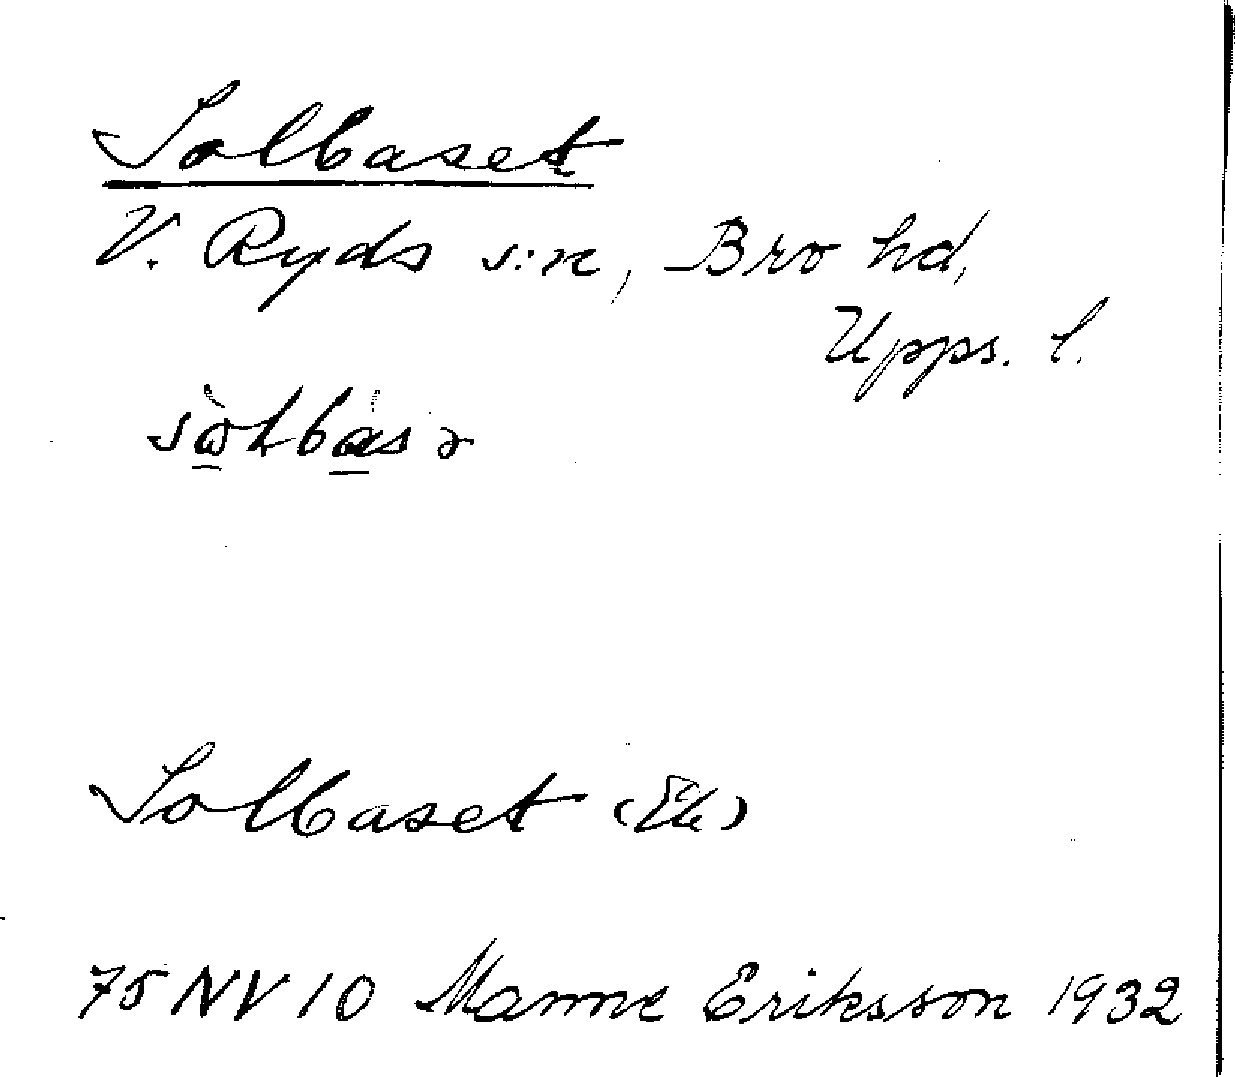 Solbaset
V. Ryds s:n, Bro hd,
Upps. l.
Solbaset (Ek)
75 NV 10 Manne Eriksson 1932